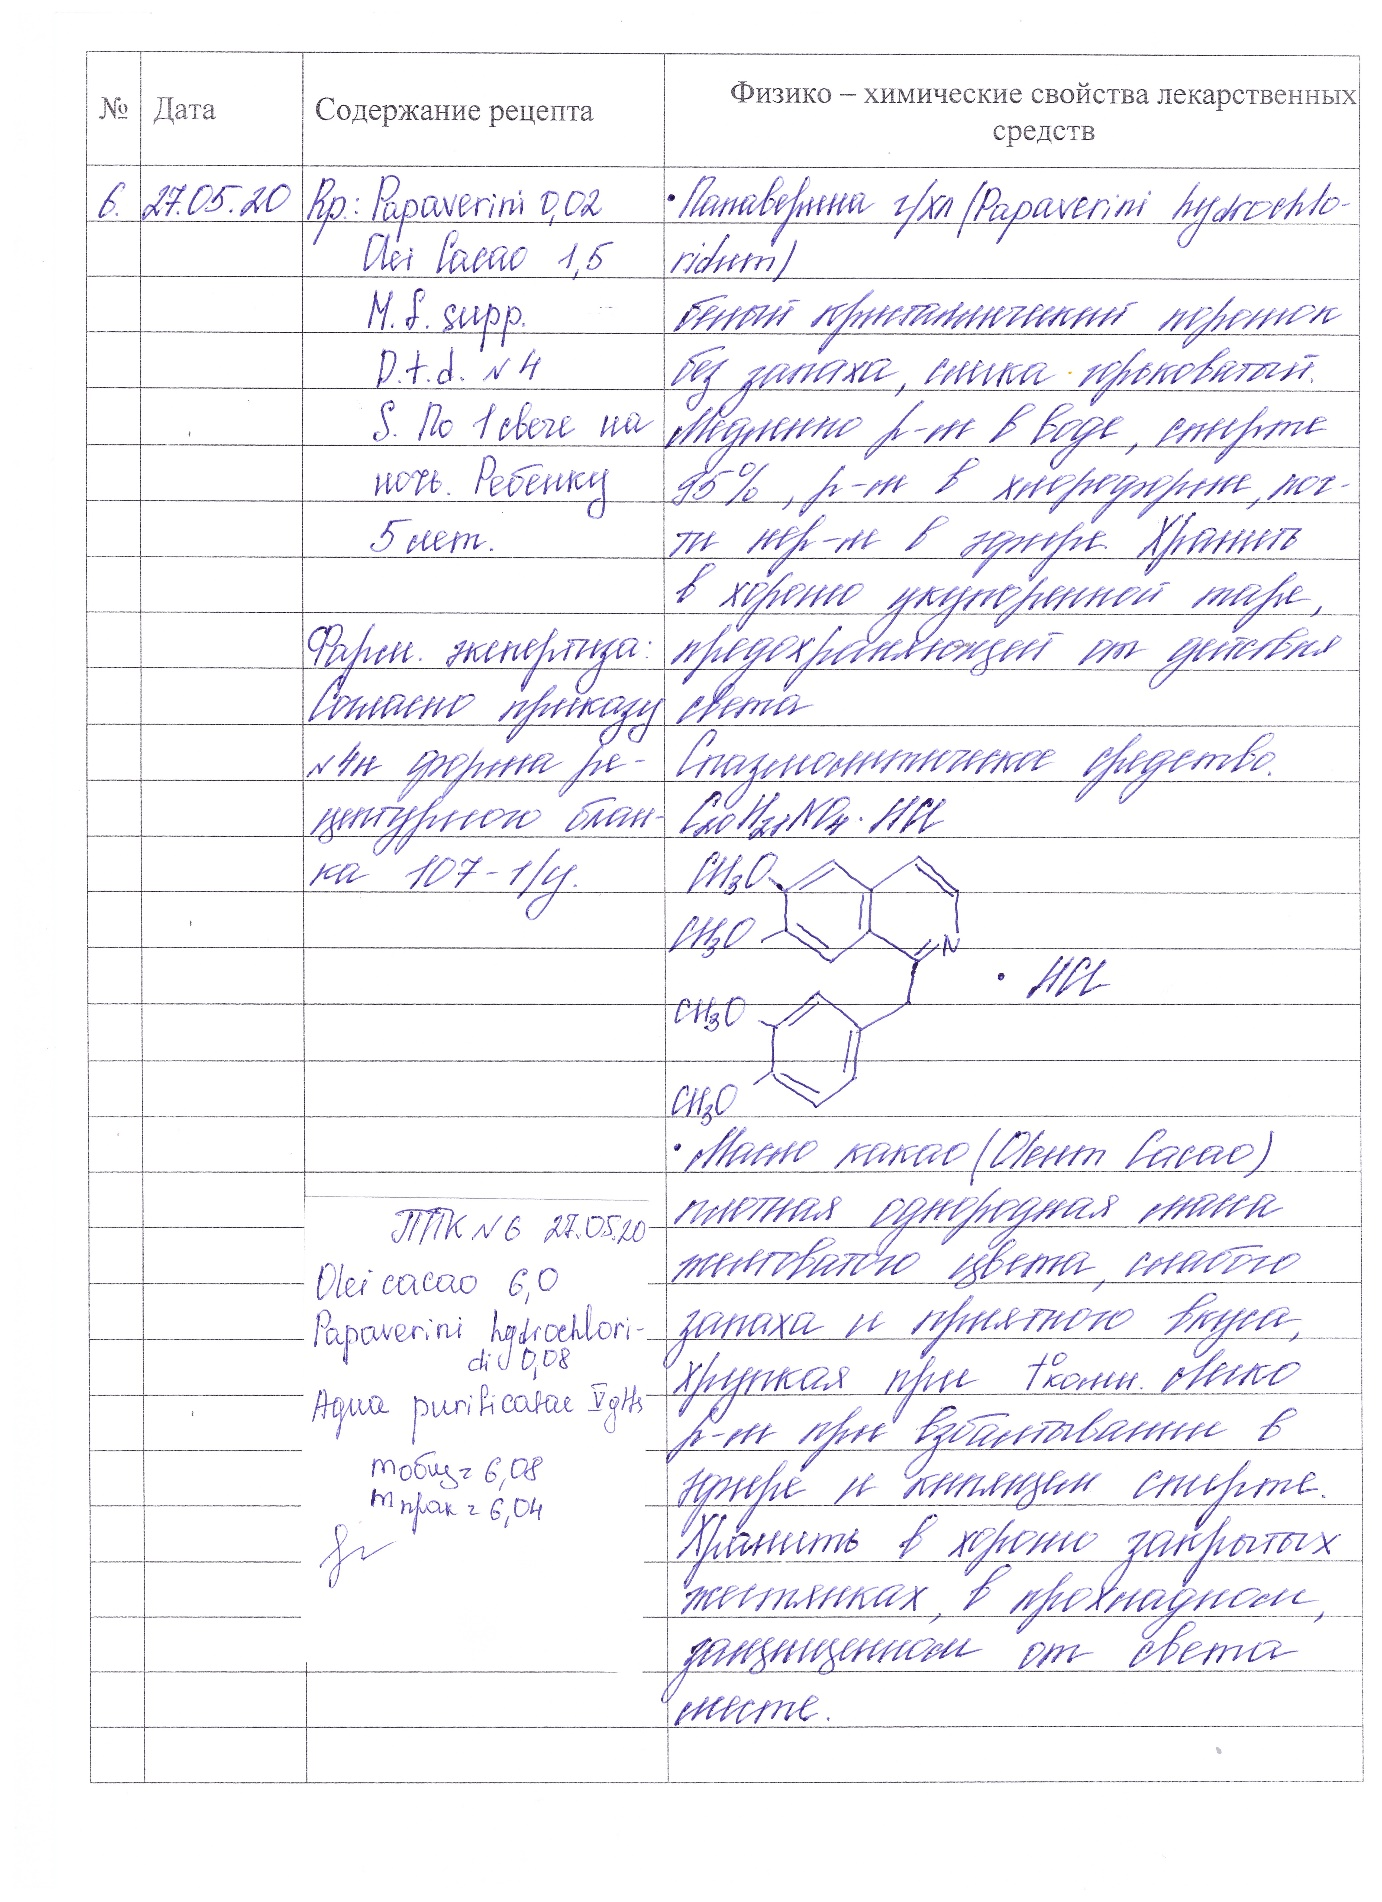 № Дата Содержание рецепта Физико – химические свойства лекарственных
средств
6. 27.05.20
Rp.: Papaverini 0,02
Olei Cacao 1,5
M. f. supp.
D.t.d. №4
S. По 1 свече на
ночь. Ребенку
5 лет.
Фарм. экспертиза:
Согласно приказу
№4н форма ре-
цептурного блан-
ка 107-1/у.
ППК №6 27.05.20
Olei cacao 6,0
Papaverini hydrochlori-
di 0,08
Aqua purificatae V gtts
mобщ = 6,08
mпрак = 6,04
• Папаверина г/хл (Papaverini hydrochlo-
ridum)
белый кристаллический порошок
без запаха, слегка горьковатый.
Медленно р-м в воде, спирте
95%, р-м в хлороформе, поч-
ти нер-м в эфире. Хранить
в хорошо укупоренной таре,
предохраняющей от действия
света
Спазмолитическое средство.
C20H21NO4 · HCl
CH3O
CH3O
N
• HCl
CH3O
CH3O
• Масло какао (Oleum Cacao)
плотная однородная масса
желтоватого цвета, слабого
запаха и приятного вкуса,
хрупкая при t° комн. Легко
р-м при взбалтывании в
эфире и кипящем спирте.
Хранить в хорошо закрытых
жестянках, в прохладном,
защищенном от света
месте.